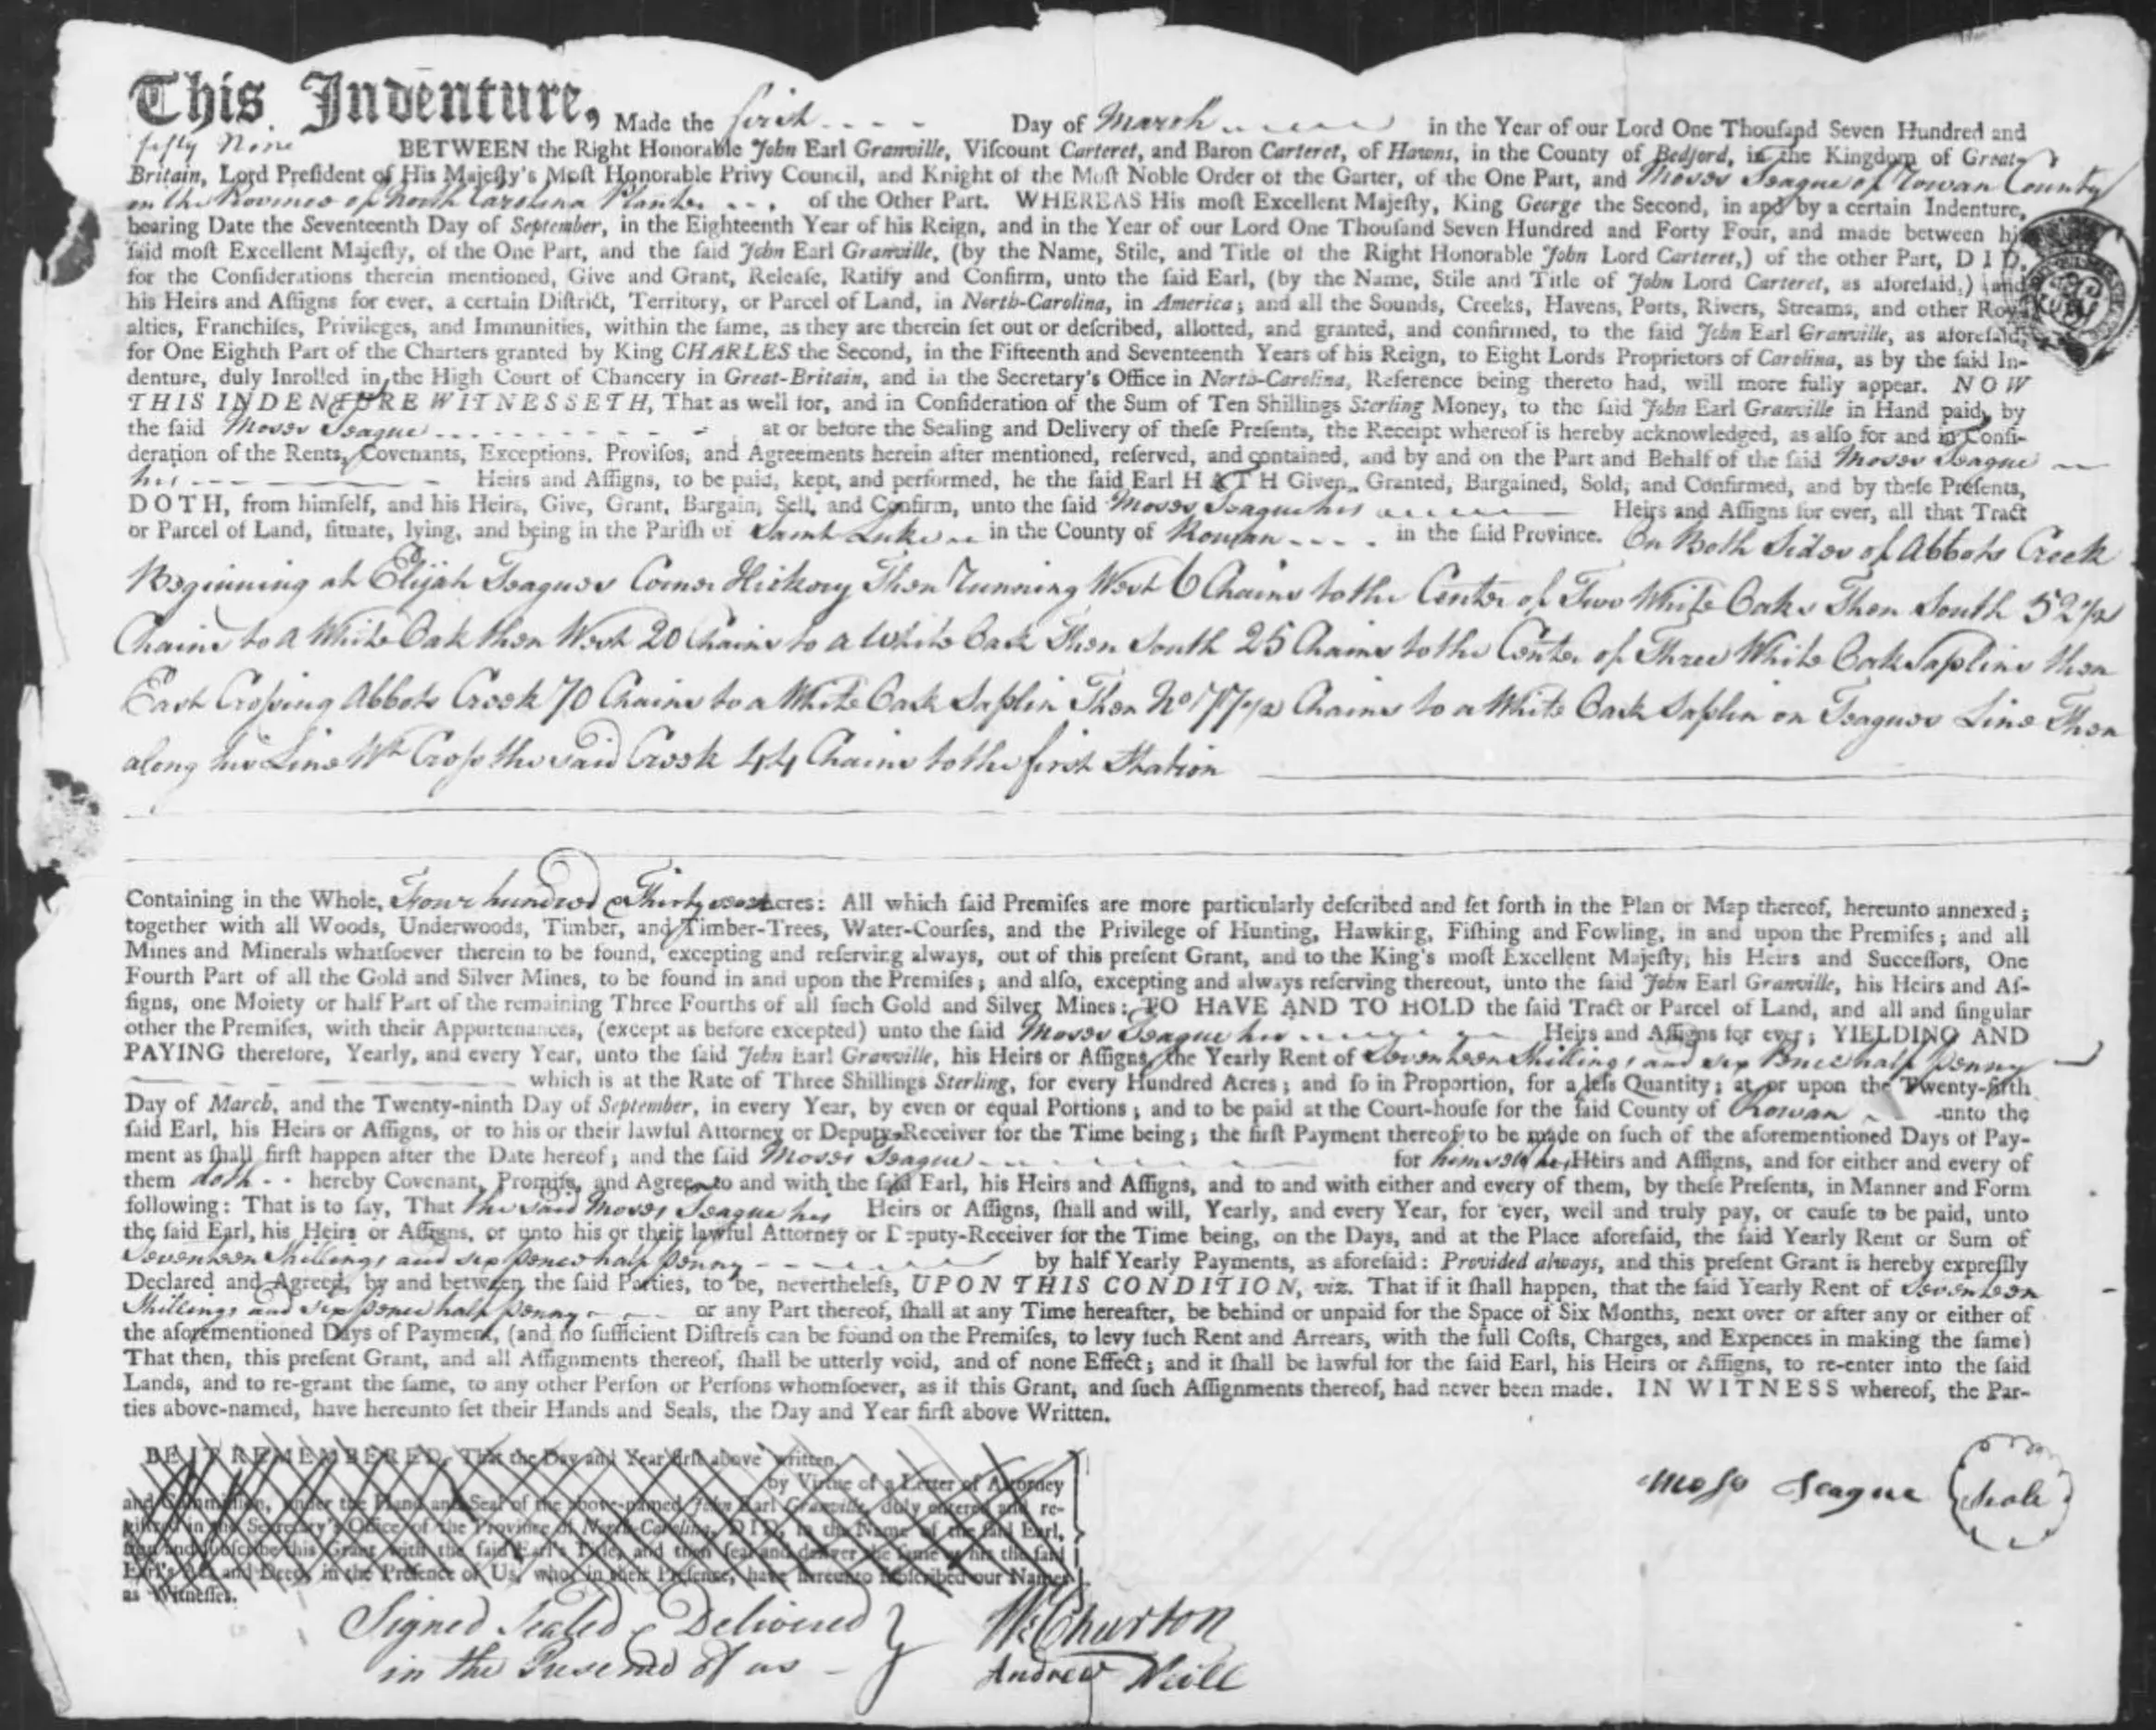 This Indenture, Made the first Day of March in the Year of our Lord One Thouſand Seven Hundred and
fifty Nine BETWEEN the Right Honorable John Earl Granville, Viſcount Carteret, and Baron Carteret, of Hawns, in the County of Bedford, in the Kingdom of Great-
Britain, Lord Preſident of His Majeſty's Moſt Honorable Privy Council, and Knight of the Moſt Noble Order of the Garter, of the One Part, and Moses Teague of Rowan County
in the Province of North Carolina Planter of the Other Part. WHEREAS His moſt Excellent Majeſty, King George the Second, in and by a certain Indenture,
bearing Date the Seventeenth Day of September, in the Eighteenth Year of his Reign, and in the Year of our Lord One Thouſand Seven Hundred and Forty Four, and made between his
ſaid moſt Excellent Majeſty, of the One Part, and the ſaid John Earl Granville, (by the Name, Stile, and Title of the Right Honorable John Lord Carteret,) of the other Part, DID,
for the Conſiderations therein mentioned, Give and Grant, Releaſe, Ratify and Confirm, unto the ſaid Earl, (by the Name, Stile and Title of John Lord Carteret, as aforeſaid,) and
his Heirs and Aſſigns for ever, a certain Diſtrict, Territory, or Parcel of Land, in North-Carolina, in America; and all the Sounds, Creeks, Havens, Ports, Rivers, Streams, and other Roy-
alties, Franchiſes, Privileges, and Immunities, within the ſame, as they are therein ſet out or deſcribed, allotted, and granted, and confirmed, to the ſaid John Earl Granville, as aforeſaid,
for One Eighth Part of the Charters granted by King CHARLES the Second, in the Fifteenth and Seventeenth Years of his Reign, to Eight Lords Proprietors of Carolina, as by the ſaid In-
denture, duly Inrolled in the High Court of Chancery in Great-Britain, and in the Secretary's Office in North-Carolina, Reference being thereto had, will more fully appear. NOW
THIS INDENTURE WITNESSETH, That as well for, and in Conſideration of the Sum of Ten Shillings Sterling Money, to the ſaid John Earl Granville in Hand paid, by
the ſaid Moses Teague at or before the Sealing and Delivery of theſe Preſents, the Receipt whereof is hereby acknowledged, as alſo for and in Conſi-
deration of the Rents, Covenants, Exceptions, Proviſos, and Agreements herein after mentioned, reſerved, and contained, and by and on the Part and Behalf of the ſaid Moses Teague
his Heirs and Aſſigns, to be paid, kept, and performed, he the ſaid Earl HATH Given, Granted, Bargained, Sold, and Confirmed, and by theſe Preſents,
DOTH, from himſelf, and his Heirs, Give, Grant, Bargain, Sell, and Confirm, unto the ſaid Moses Teague his Heirs and Aſſigns for ever, all that Tract
or Parcel of Land, ſituate, lying, and being in the Pariſh of Saint Luke in the County of Rowan in the ſaid Province. On Both Sides of Abbots Creek
Beginning at Elijah Teagues Corner Hickory Then Running West 6 Chains to the Center of Two White Oaks Then South 52 1/2
Chains to a White Oak then West 20 Chains to a White Oak Then South 25 Chains to the Center of Three White Oak Saplins then
East Croſsing Abbots Creek 70 Chains to a White Oak Saplin Then No 77 1/2 Chains to a White Oak Saplin on Teagues Line Then
along his Line Wt Croſs the said Creek 44 Chains to the first Station
Containing in the Whole, Four hundred & Thirty Acres: All which ſaid Premiſes are more particularly deſcribed and ſet forth in the Plan or Map thereof, hereunto annexed;
together with all Woods, Underwoods, Timber, and Timber-Trees, Water-Courſes, and the Privilege of Hunting, Hawking, Fiſhing and Fowling, in and upon the Premiſes; and all
Mines and Minerals whatſoever therein to be found, excepting and reſerving always, out of this preſent Grant, and to the King's moſt Excellent Majeſty, his Heirs and Succeſſors, One
Fourth Part of all the Gold and Silver Mines, to be found in and upon the Premiſes; and alſo, excepting and always reſerving thereout, unto the ſaid John Earl Granville, his Heirs and Aſ-
ſigns, one Moiety or half Part of the remaining Three Fourths of all ſuch Gold and Silver Mines: TO HAVE AND TO HOLD the ſaid Tract or Parcel of Land, and all and ſingular
other the Premiſes, with their Appurtenances, (except as before excepted) unto the ſaid Moses Teague his Heirs and Aſſigns for ever; YIELDING AND
PAYING therefore, Yearly, and every Year, unto the ſaid John Earl Granville, his Heirs or Aſſigns, the Yearly Rent of Seventeen Shillings and six Pence half Penny
which is at the Rate of Three Shillings Sterling, for every Hundred Acres; and ſo in Proportion, for a leſs Quantity; at or upon the Twenty-fifth
Day of March, and the Twenty-ninth Day of September, in every Year, by even or equal Portions; and to be paid at the Court-houſe for the ſaid County of Rowan unto the
ſaid Earl, his Heirs or Aſſigns, or to his or their lawful Attorney or Deputy-Receiver for the Time being; the firſt Payment thereof to be made on ſuch of the aforementioned Days of Pay-
ment as ſhall firſt happen after the Date hereof; and the ſaid Moses Teague for himself his Heirs and Aſſigns, and for either and every of
them doth hereby Covenant, Promiſe, and Agree to and with the ſaid Earl, his Heirs and Aſſigns, and to and with either and every of them, by theſe Preſents, in Manner and Form
following: That is to ſay, That the said Moses Teague his Heirs or Aſſigns, ſhall and will, Yearly, and every Year, for ever, well and truly pay, or cauſe to be paid, unto
the ſaid Earl, his Heirs or Aſſigns, or unto his or their lawful Attorney or Deputy-Receiver for the Time being, on the Days, and at the Place aforeſaid, the ſaid Yearly Rent or Sum of
Seventeen Shillings and six pence half penny by half Yearly Payments, as aforeſaid: Provided always, and this preſent Grant is hereby expreſſly
Declared and Agreed, by and between the ſaid Parties, to be, nevertheleſs, UPON THIS CONDITION, viz. That if it ſhall happen, that the ſaid Yearly Rent of Seventeen
Shillings and six pence half penny or any Part thereof, ſhall at any Time hereafter, be behind or unpaid for the Space of Six Months, next over or after any or either of
the aforementioned Days of Payment, (and no ſufficient Diſtreſs can be found on the Premiſes, to levy ſuch Rent and Arrears, with the full Coſts, Charges, and Expences in making the ſame)
That then, this preſent Grant, and all Aſſignments thereof, ſhall be utterly void, and of none Effect; and it ſhall be lawful for the ſaid Earl, his Heirs or Aſſigns, to re-enter into the ſaid
Lands, and to re-grant the ſame, to any other Perſon or Perſons whomſoever, as if this Grant, and ſuch Aſſignments thereof, had never been made. IN WITNESS whereof, the Par-
ties above-named, have hereunto ſet their Hands and Seals, the Day and Year firſt above Written.
BE IT REMEMBERED, That the Day and Year firſt above written,
by Virtue of a Letter of Attorney
and Commiſſion, under the Hand and Seal of the above-named John Earl Granville, duly entered and re-
giſtred in the Secretary's Office of the Province of North-Carolina, DID, in the Name of the ſaid Earl,
ſign and ſubſcribe this Grant with the ſaid Earl's Title, and then ſeal and deliver the ſame as his the ſaid
Earl's Act and Deed, in the Preſence of Us, who, in their Preſence, have hereunto ſubſcribed our Names
as Witneſſes.
Moſs Teague Seale
Signed Sealed & Delivered
in the Presence of us
Wm Churton
Andrew Neill